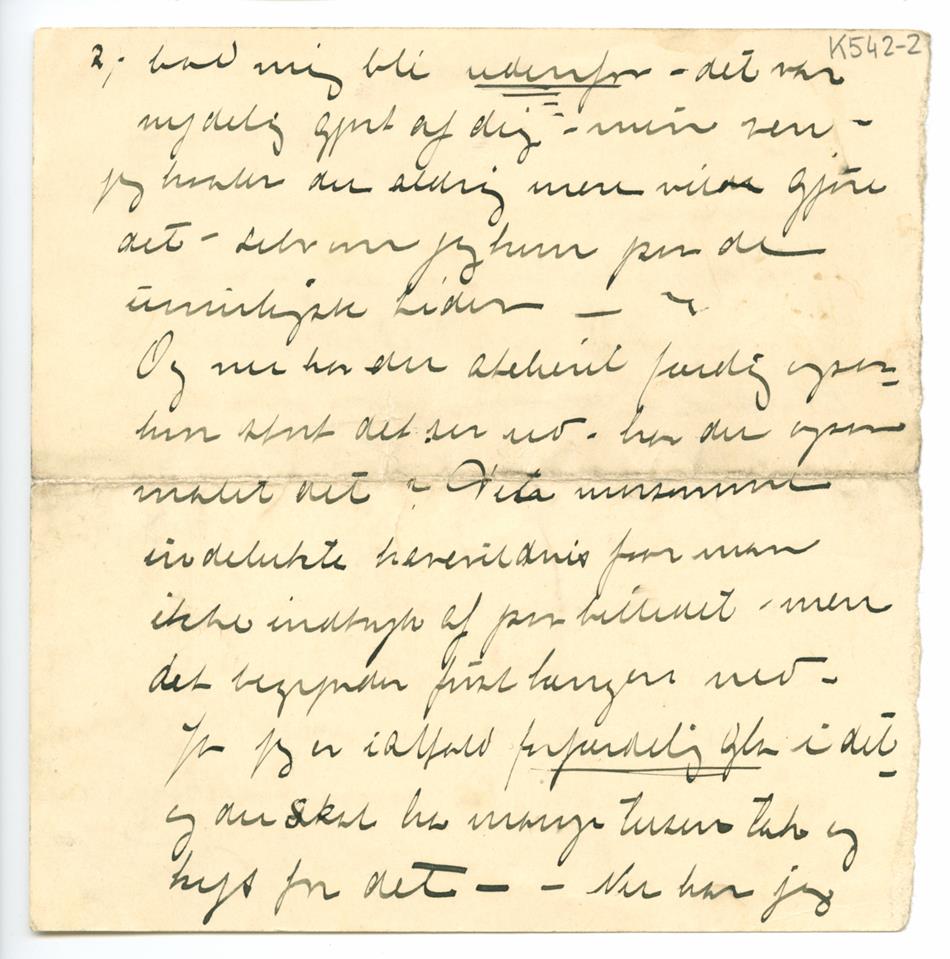 K542-2
2, bad mig bli udenfor - det var
nydelig gjort af dig - min ven -
jeg haaber du aldrig mere vil gjøre
det - selv om jeg kun paa de
sider —
Og nu har du atelieret færdig ogsaa -
hvor stort det ser ud - har du ogsaa
malet det ? Det
indelukte havevildnis faar man
ikke indtryk af paa billedet - men
det begynder først længere ned -
Ja jeg er ialfald forfærdelig gla i det -
og du skal ha mange tusen tak og
kys for det — — Nu har jeg